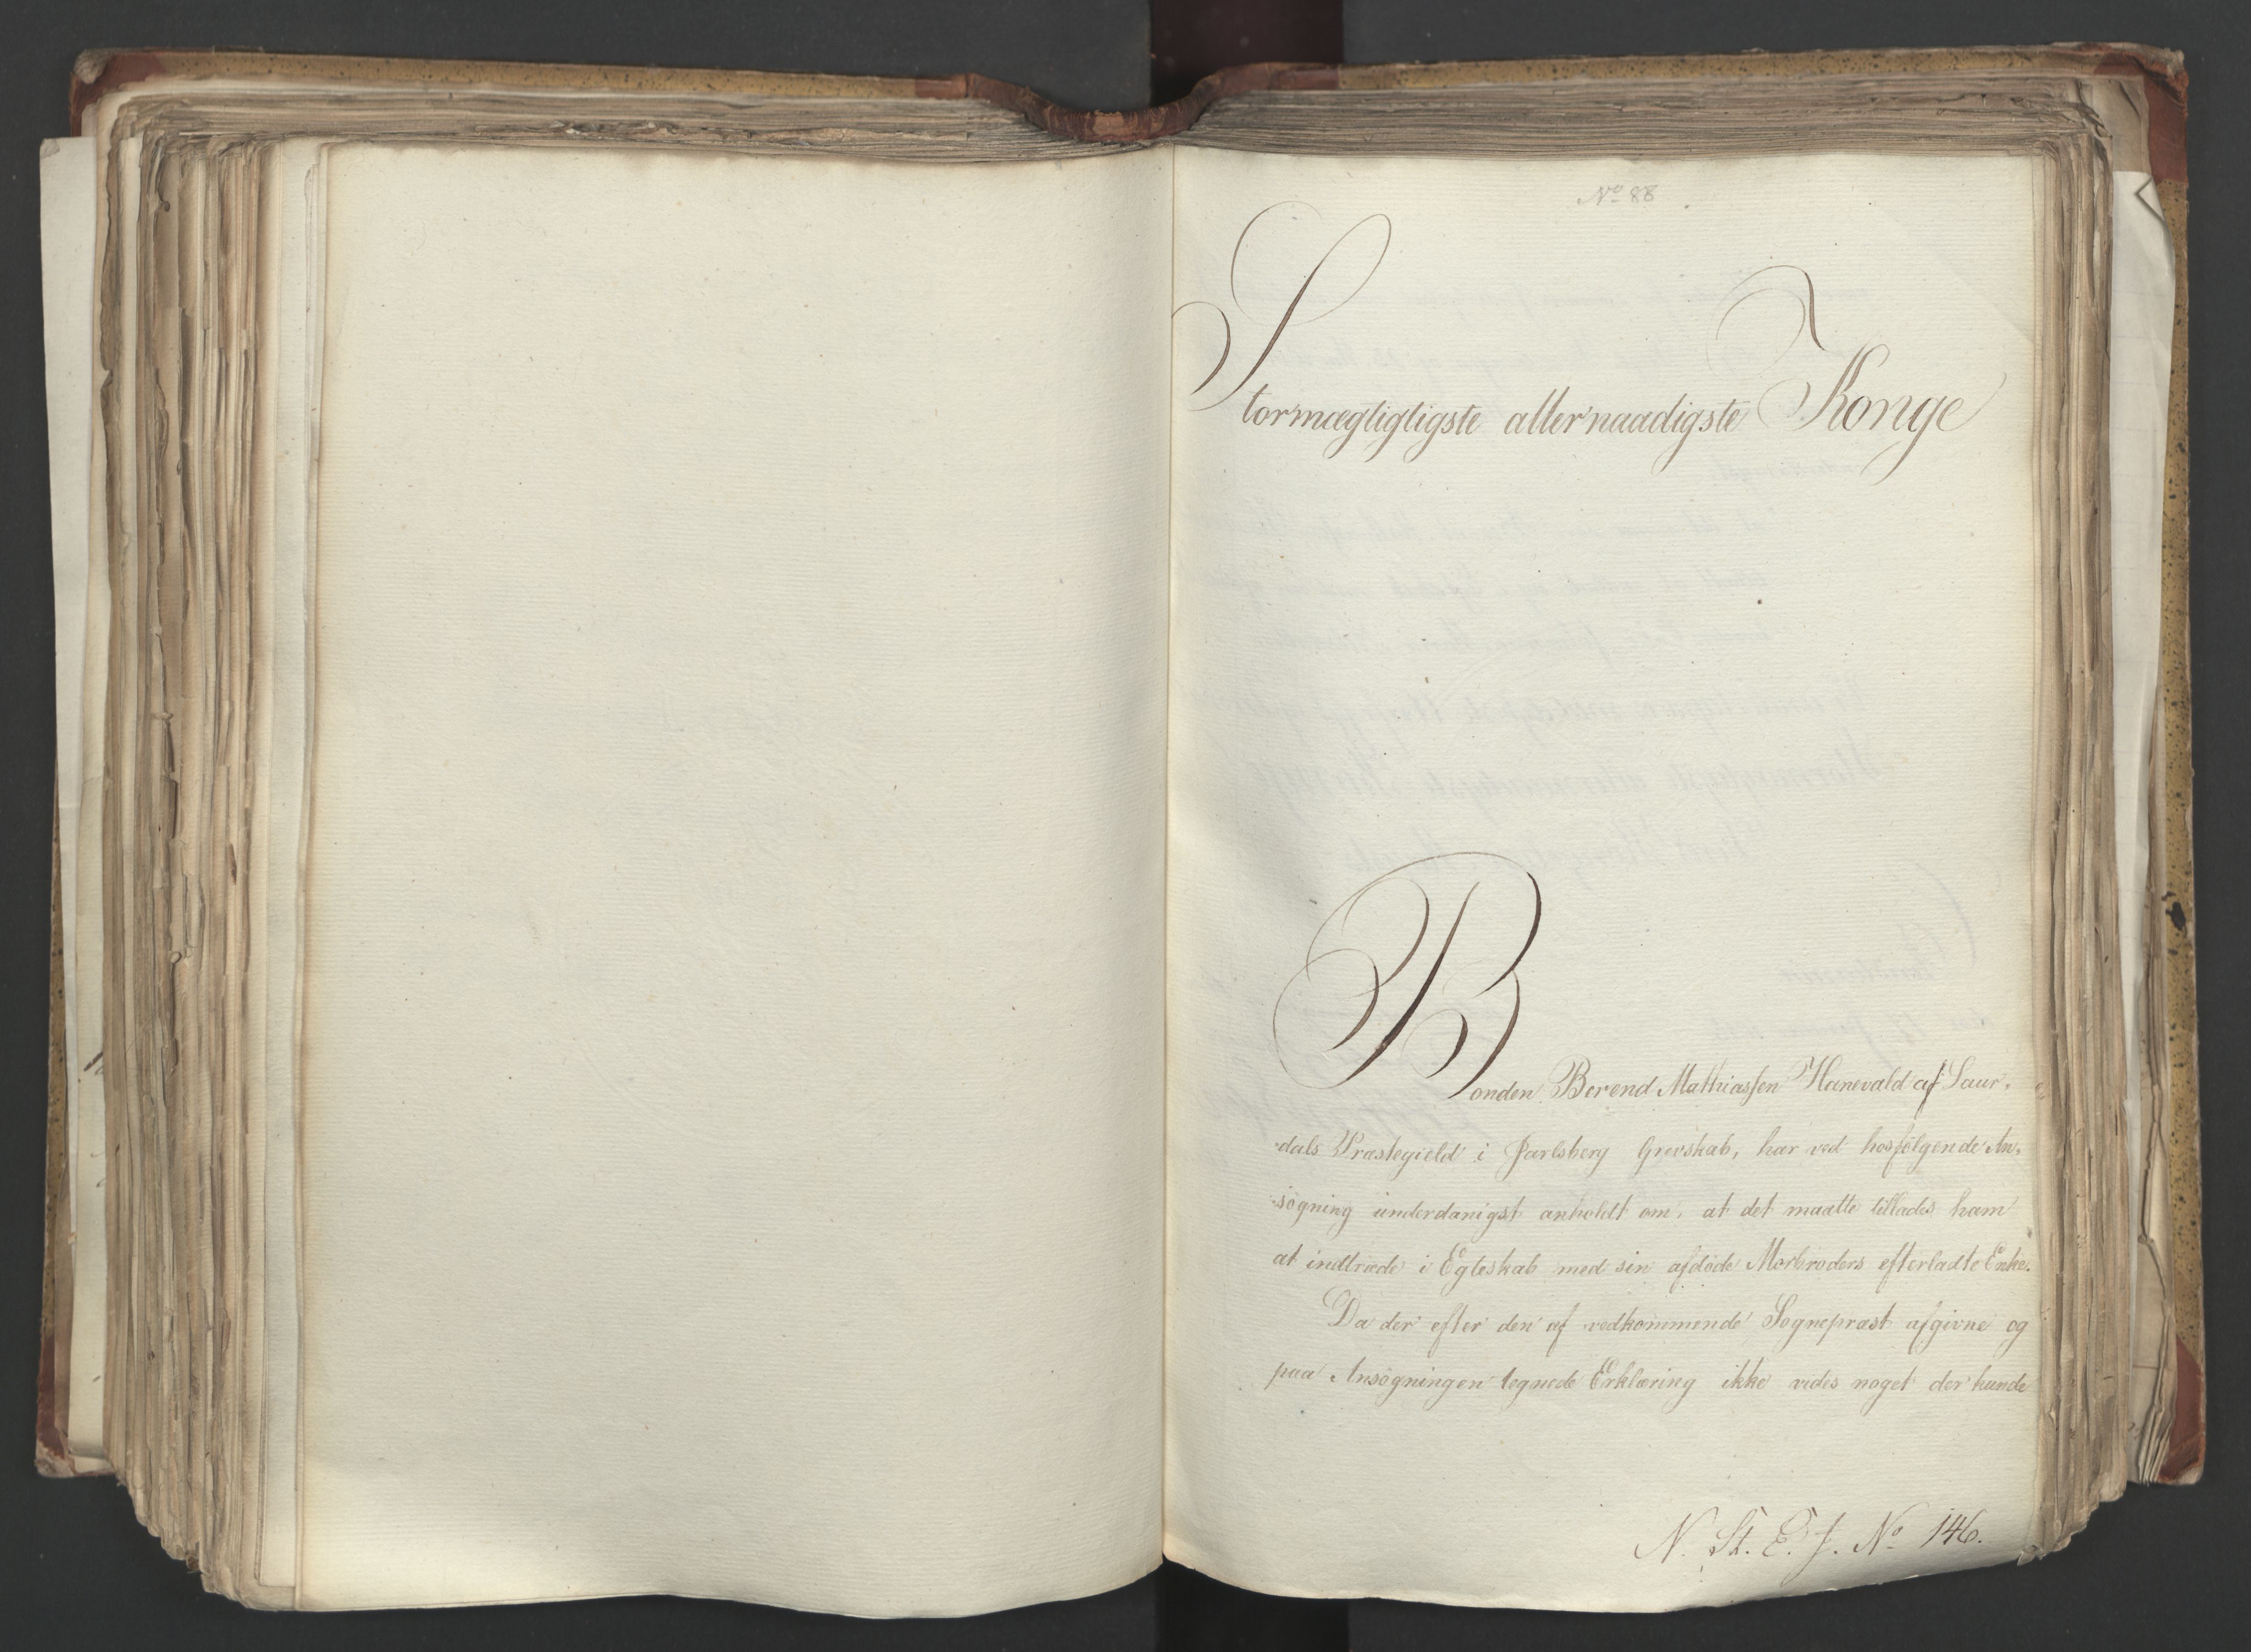 No 88
Stormægtigtigste allernaadigste Konge
Bonden Berend Mathiassen Hanevald af Laur-
dals Præstegield i Jarlsberg Grevskab, har ved hosfölgende An-
sögning underdanigst anholdt om, at det maatte tillades ham
at indtræde i Egteskab med sin afdöde Morbroders efterladte Enke.
Da der efter den af vedkommende Sognepræst afgivne og
paa Ansögningen tegnede Erklæring ikke vides noget der kunde
N. St. E. J. No 146.